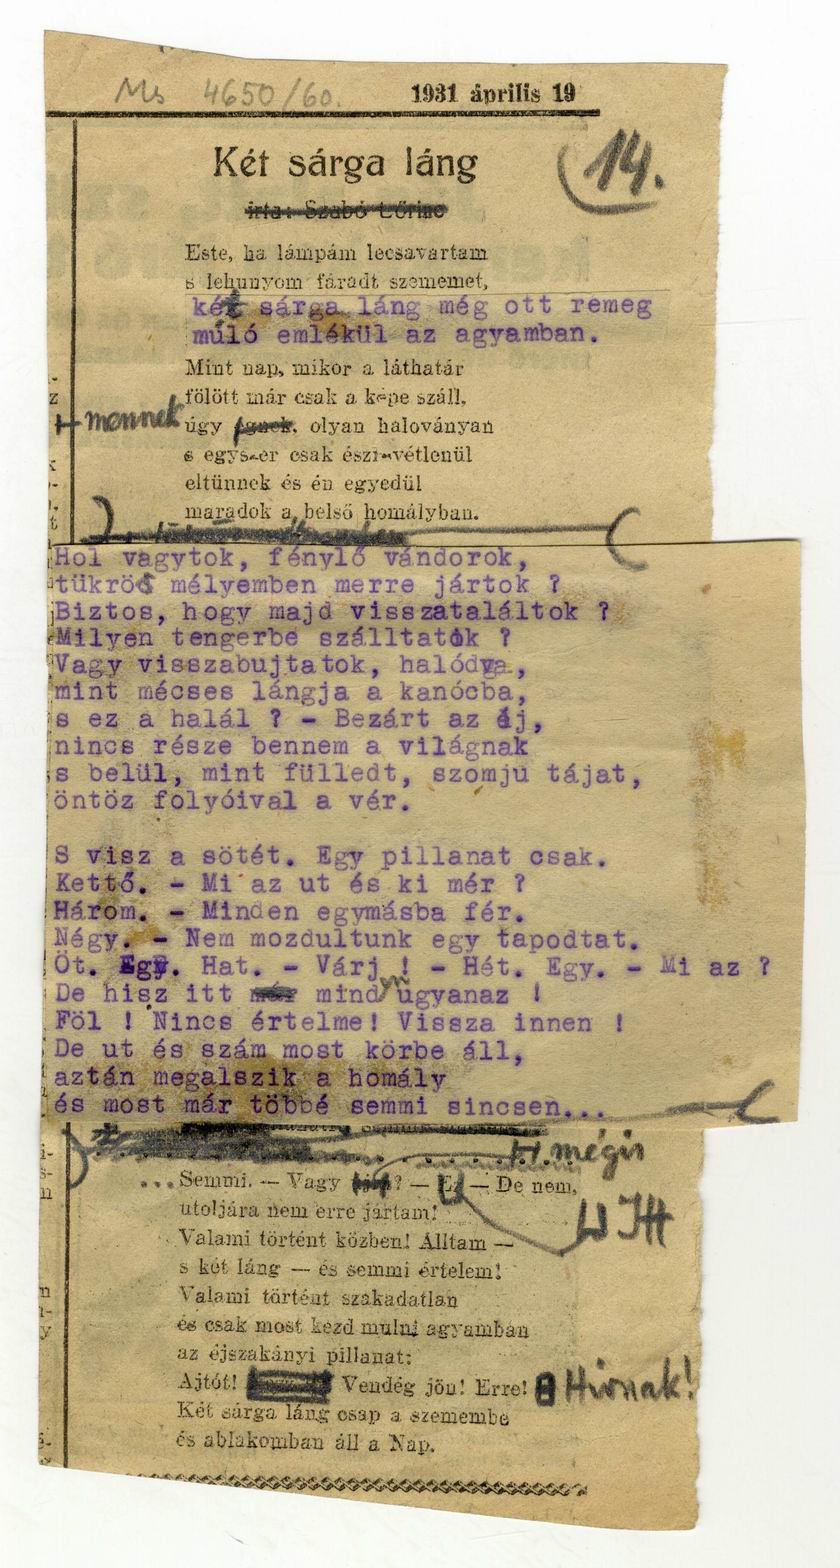 Ms 4650/60.
1931 április 19
Két sárga láng
14.
írta: Szabó Lőrinc
Este, ha lámpám lecsavartam
s lehunyom fáradt szememet,
két sárga láng még ott remeg
múló emlékül az agyamban.
Mint nap, mikor a láthatár
fölött már csak a képe száll,
mennek
úgy égnek, olyan haloványan
s egyszer csak észrevétlenül
eltünnek és én egyedül
maradok a belső homályban.
Hol vagytok, fénylő vándorok,
tükrös mélyemben merre jártok ?
Biztos, hogy majd visszataláltok ?
Milyen tengerbe szálltatok ?
Vagy visszabujtatok, halódva,
mint mécses lángja a kanócba,
s ez a halál ? - Bezárt az éj,
nincs része bennem a világnak
s belül, mint fülledt, szomju tájat,
öntöz folyóival a vér.
S visz a sötét. Egy pillanat csak.
Kettő. - Mi az ut és ki mér ?
Három. - Minden egymásba fér.
Négy. - Nem mozdultunk egy tapodtat.
Öt. Egy. Hat. - Várj ! - Hét. Egy. - Mi az ?
De hisz itt már mind ugyanaz !
Föl ! Nincs értelme! Vissza innen !
De ut és szám most körbe áll,
aztán megalszik a homály
és most már többé semmi sincsen...
mégis
...Semmi. — Vagy ? — — De nem,
utoljára nem erre jártam!
Itt
Valami történt közben! Álltam —
s két láng — és semmi értelem!
Valami történt szakadatlan
és csak most kezd mulni agyamban
az éjszakányi pillanat:
Ajtót! Vendég jön! Erre! Hivnak!
Két sárga láng csap a szemembe
és ablakomban áll a Nap.